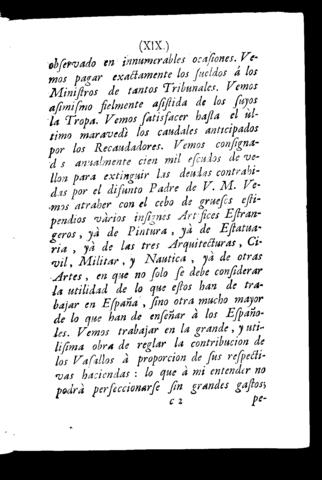 (XIX.)
observado en innumerables ocasiones. Ve-
mos pagar exactamente los sueldos á los
Ministros de tantos Tribunales. Vemos
asimismo fielmente asistida de los suyos
la Tropa. Vemos satisfacer hasta el ùl-
timo maravedì los caudales anticipados
por los Recaudadores. Vemos consigna-
d s anualmente cien mil escudos de ve-
llon para extinguir las deudas contrahi-
das por el difunto Padre de V. M. Ve-
mos atraher con el cebo de gruesos esti-
pendios vàrios insignes Artifices Estran-
geros, yà de Pintura, yà de Estatua-
ria, yà de las tres Arquitecturas, Ci-
vil, Militar, y Nautica, yà de otras
Artes, en que no solo se debe considerar
la utilidad de lo que estos han de tra-
bajar en España, sino otra mucho mayor
de lo que han de enseñar à los Españo-
les. Vemos trabajar en la grande, y uti-
lissima obra de reglar la contribucion de
los Vasallos à proporcion de sus respecti-
vas haciendas: lo que à mi entender no
podrà perfeccionarse sin grandes gastos;
c 2 pe-